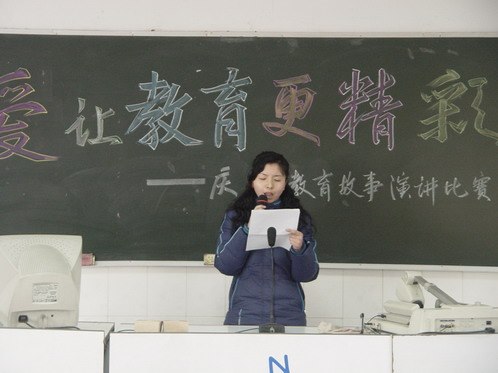 爱让教育更精彩
——庆 教育故事演讲比赛
N